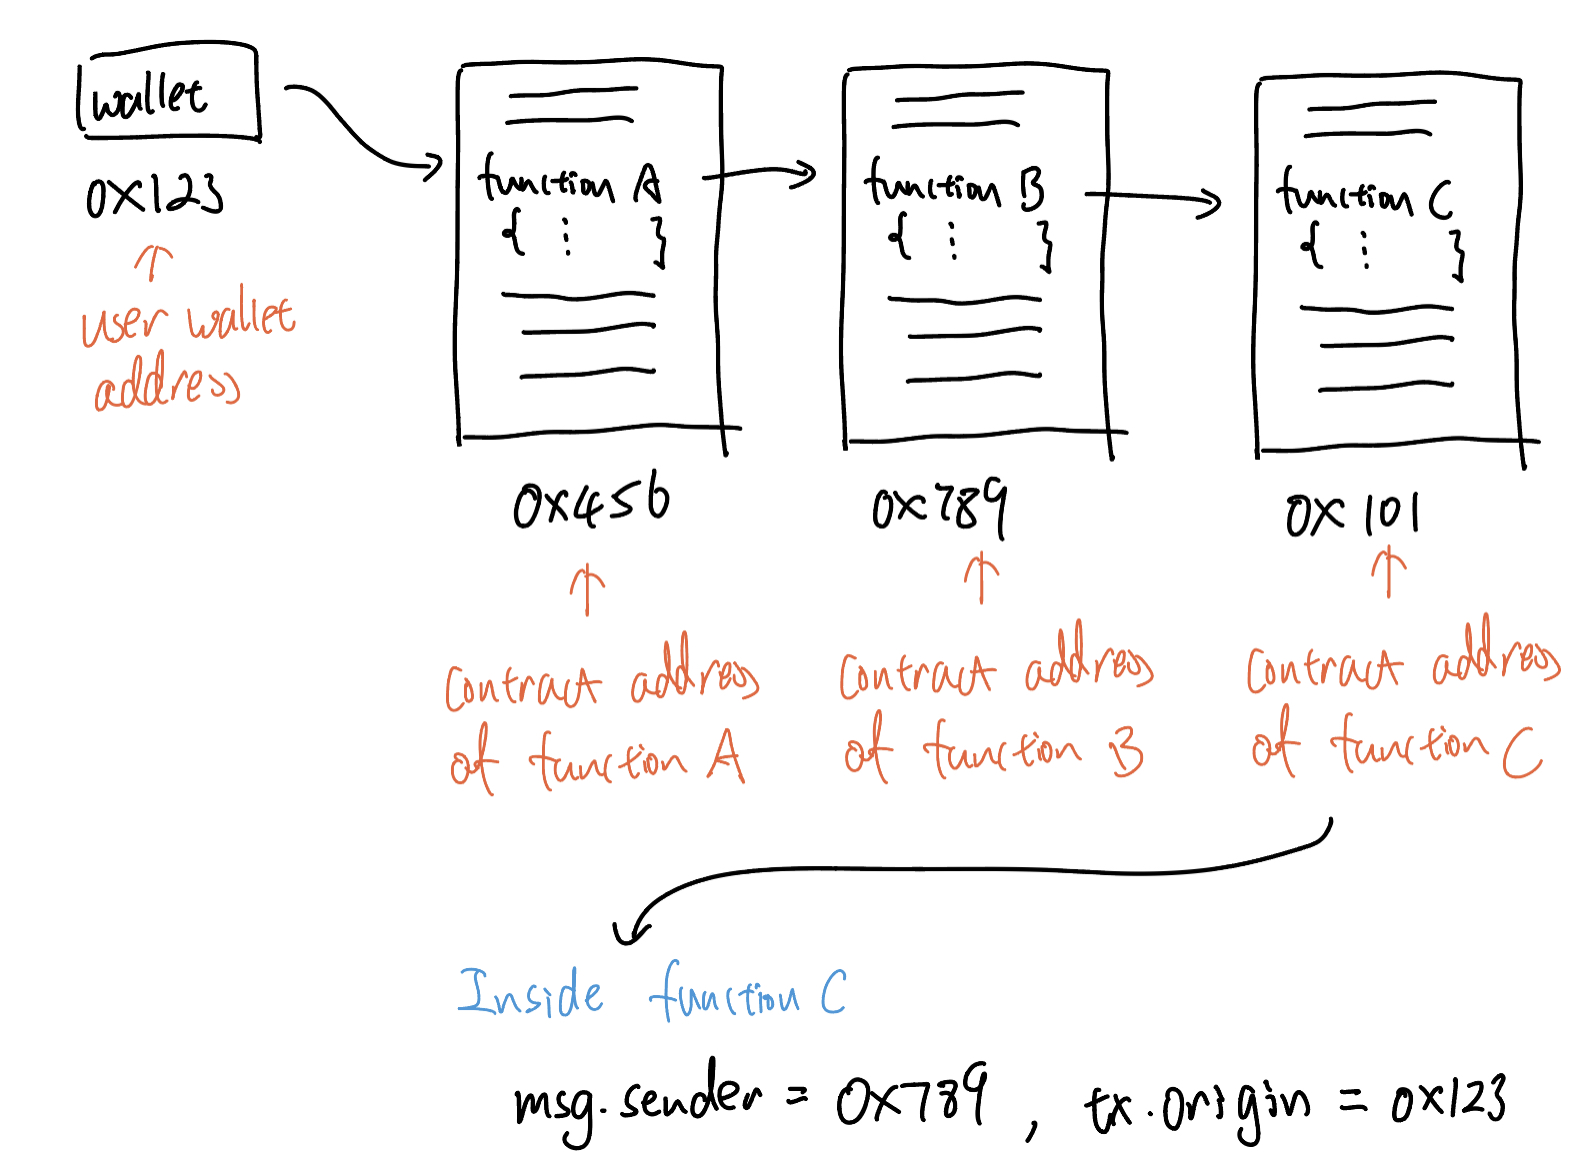 wallet
0x123
user wallet
address
function A
{ ⋮ }
0x456
contract address
of function A
function B
{ ⋮ }
0x789
contract address
of function B
function C
{ ⋮ }
0x101
contract address
of function C
Inside function C
msg.sender = 0x789 , tx.origin = 0x123